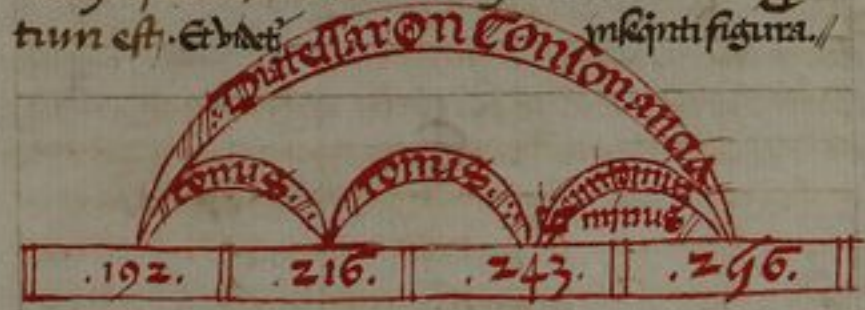 tium est. Et videt' insequ̅nti figura.//
Diatessaron Consonancia
tonus. tonus. Semitonius
minus
.192. .216. .243. .296.